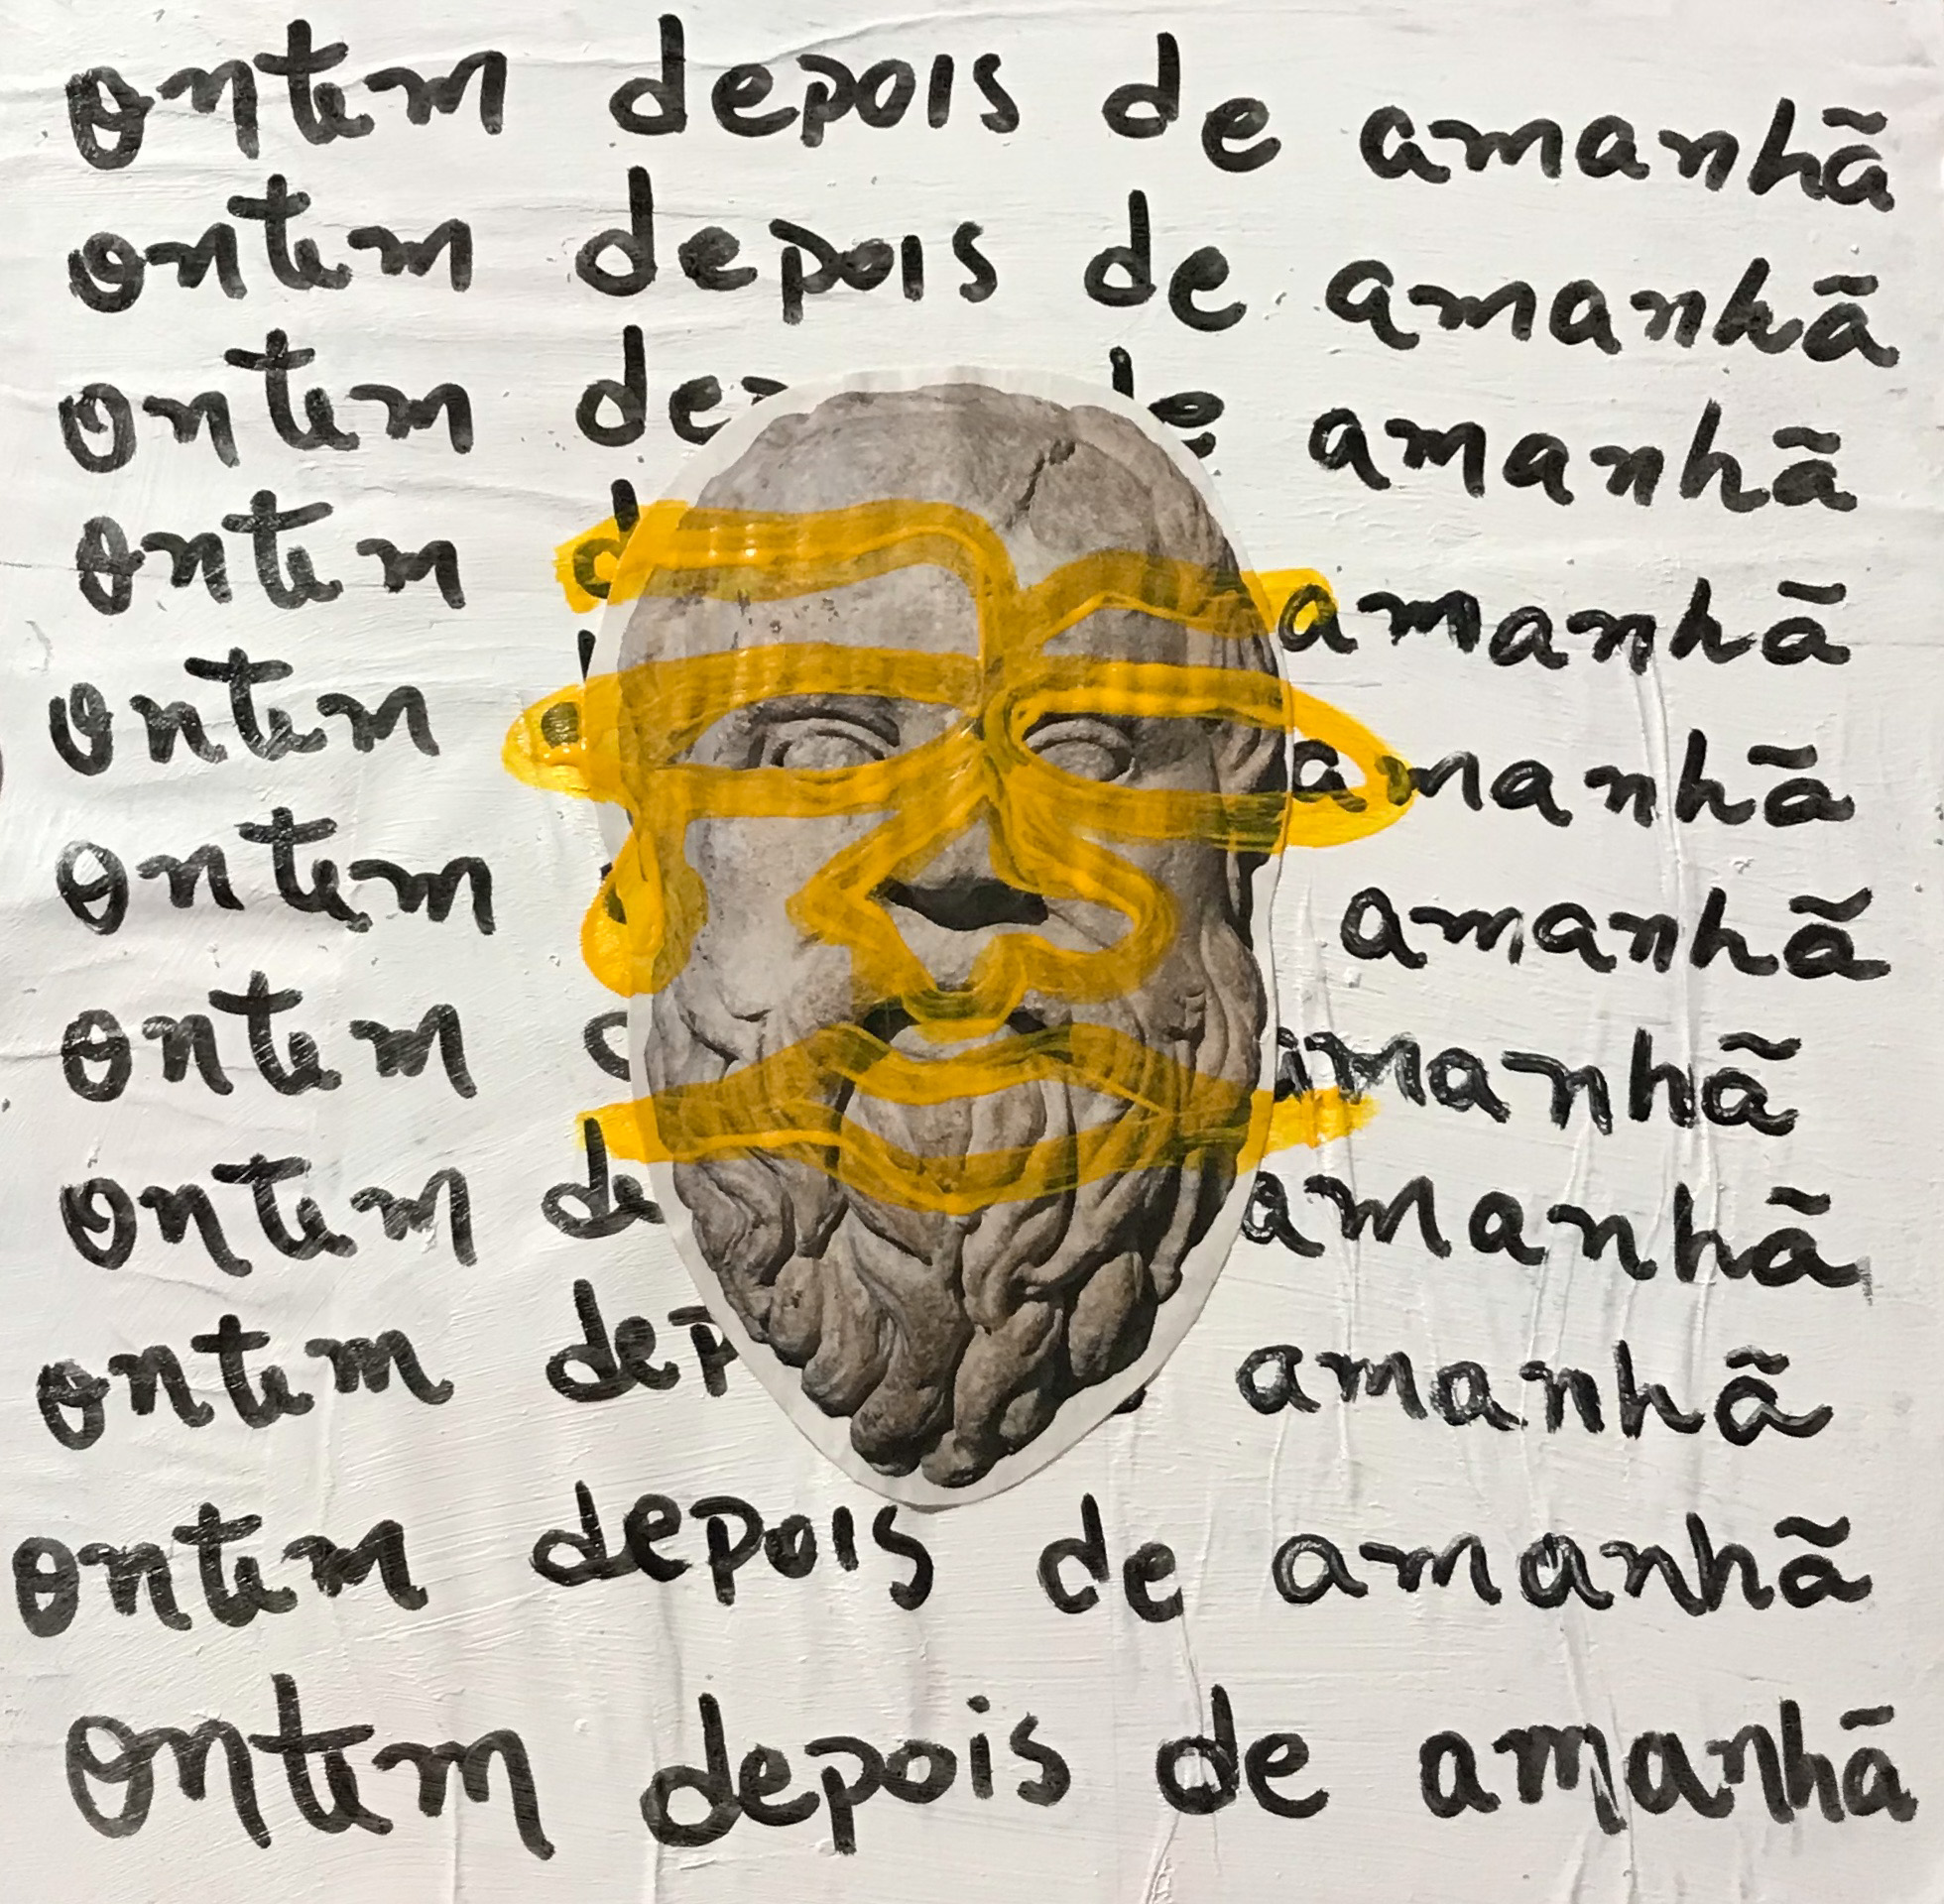 ontem depois de amanhã
ontem depois de amanhã
ontem de amanhã
ontem amanhã
ontem amanhã
ontem amanhã
ontem amanhã
ontem amanhã
ontem amanhã
ontem depois de amanhã
ontem depois de amanhã